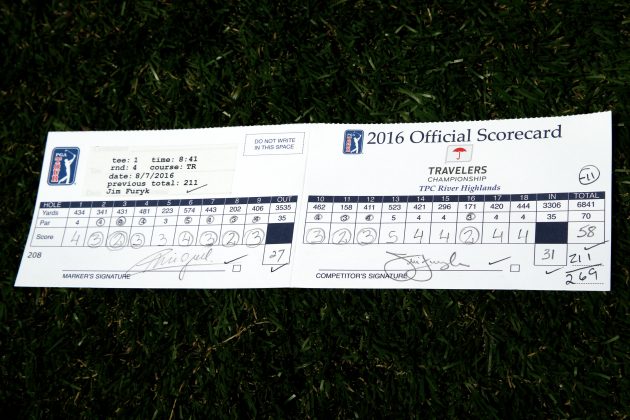 DO NOT WRITE
IN THIS SPACE
PGA TOUR
tee: 1 time: 8:41
rnd: 4 course: TR
date: 8/7/2016
previous total: 211
Jim Furyk
HOLE 1 2 3 4 5 6 7 8 9 OUT
Yards 434 341 431 481 223 574 443 202 406 3535
Par 4 4 4 4 3 5 4 3 4 35
Score 4 3 2 3 3 4 3 2 3 27
208
MARKER'S SIGNATURE
2016 Official Scorecard
TRAVELERS
CHAMPIONSHIP
TPC River Highlands
-11
10 11 12 13 14 15 16 17 18 IN TOTAL
462 158 411 523 421 296 171 420 444 3306 6841
4 3 4 5 4 4 3 4 4 35 70
3 2 3 5 4 4 2 4 4 31 58
211
269
COMPETITOR'S SIGNATURE